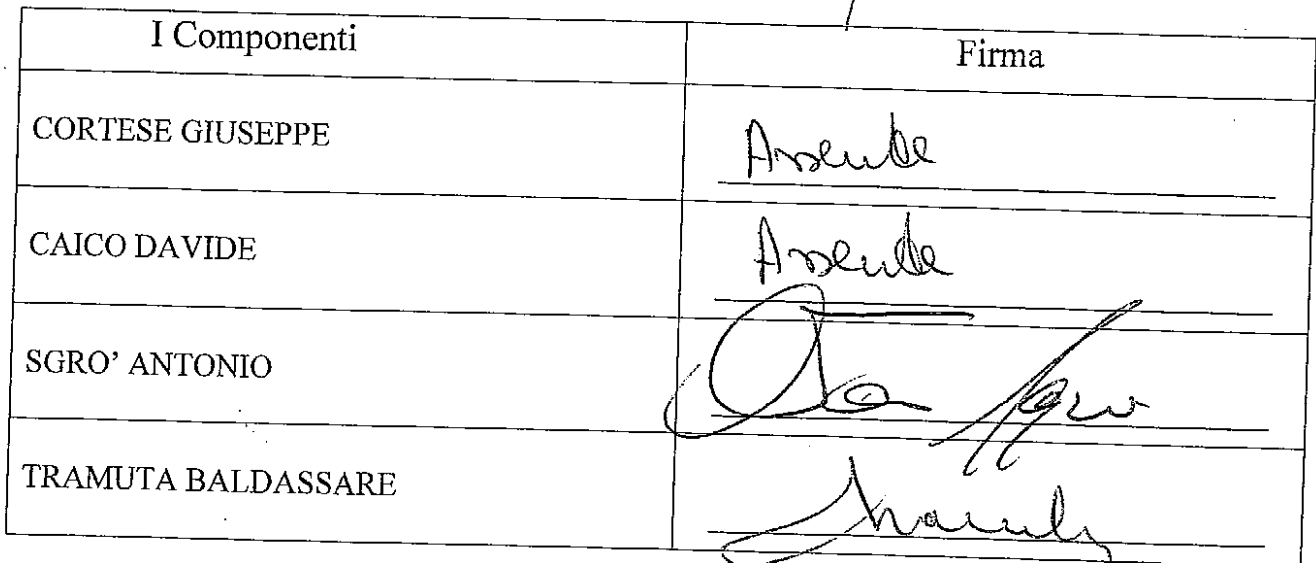 I Componenti Firma
CORTESE GIUSEPPE Assente
CAICO DAVIDE Assente
SGRO' ANTONIO
TRAMUTA BALDASSARE